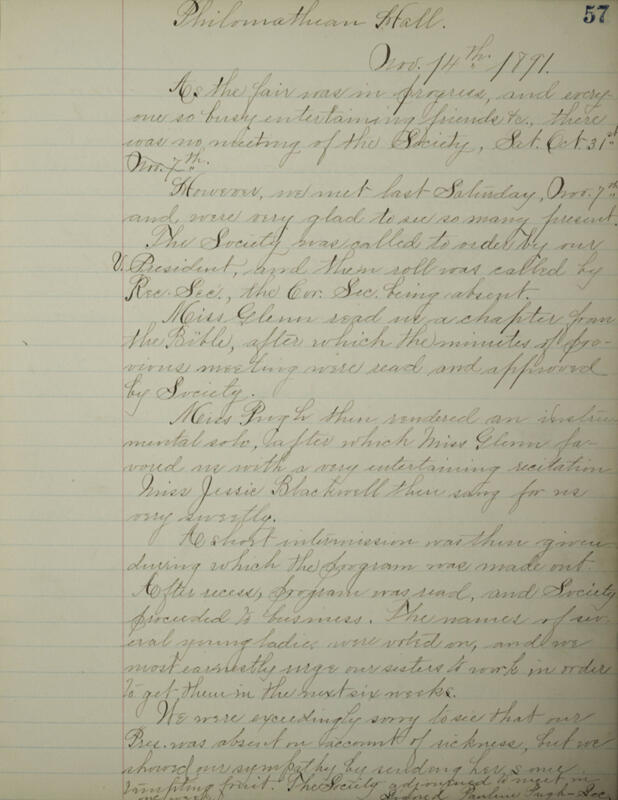 57
Philomathean Hall.
Nov. 14th 1891.
As the fair was in progress, and every-
one so busy entertaining friends &c., there
was no meeting of the Society, Sat. Oct 31st
Nov. 7th.
However, we met last Saturday, Nov. 7th
and were very glad to see so many present.
The Society was called to order by our
V. President, and then roll was called by
Rec. Sec., the Cor. Sec. being absent.
Miss Glenn read us a chapter from
the Bible, after which the minutes of pre-
vious meeting were read and approved
by Society.
Miss Pugh then rendered an instru-
mental solo, after which Miss Glenn fa-
vored us with a very entertaining recitation
Miss Jessie Blackwell then sang for us
very sweetly.
A short intermission was then given
during which the program was made out.
After recess, program was read, and Society
proceeded to business. The names of sev-
eral young ladies were voted on, and we
most earnestly urge our sisters to work in order
to get them in the next six weeks.
We were exceedingly sorry to see that our
Pres. was absent on account of sickness, but we
showed our sympathy by sending her some
tempting fruit. The Society adjourned to meet in
one week.
Signed Pauline Pugh - Sec.